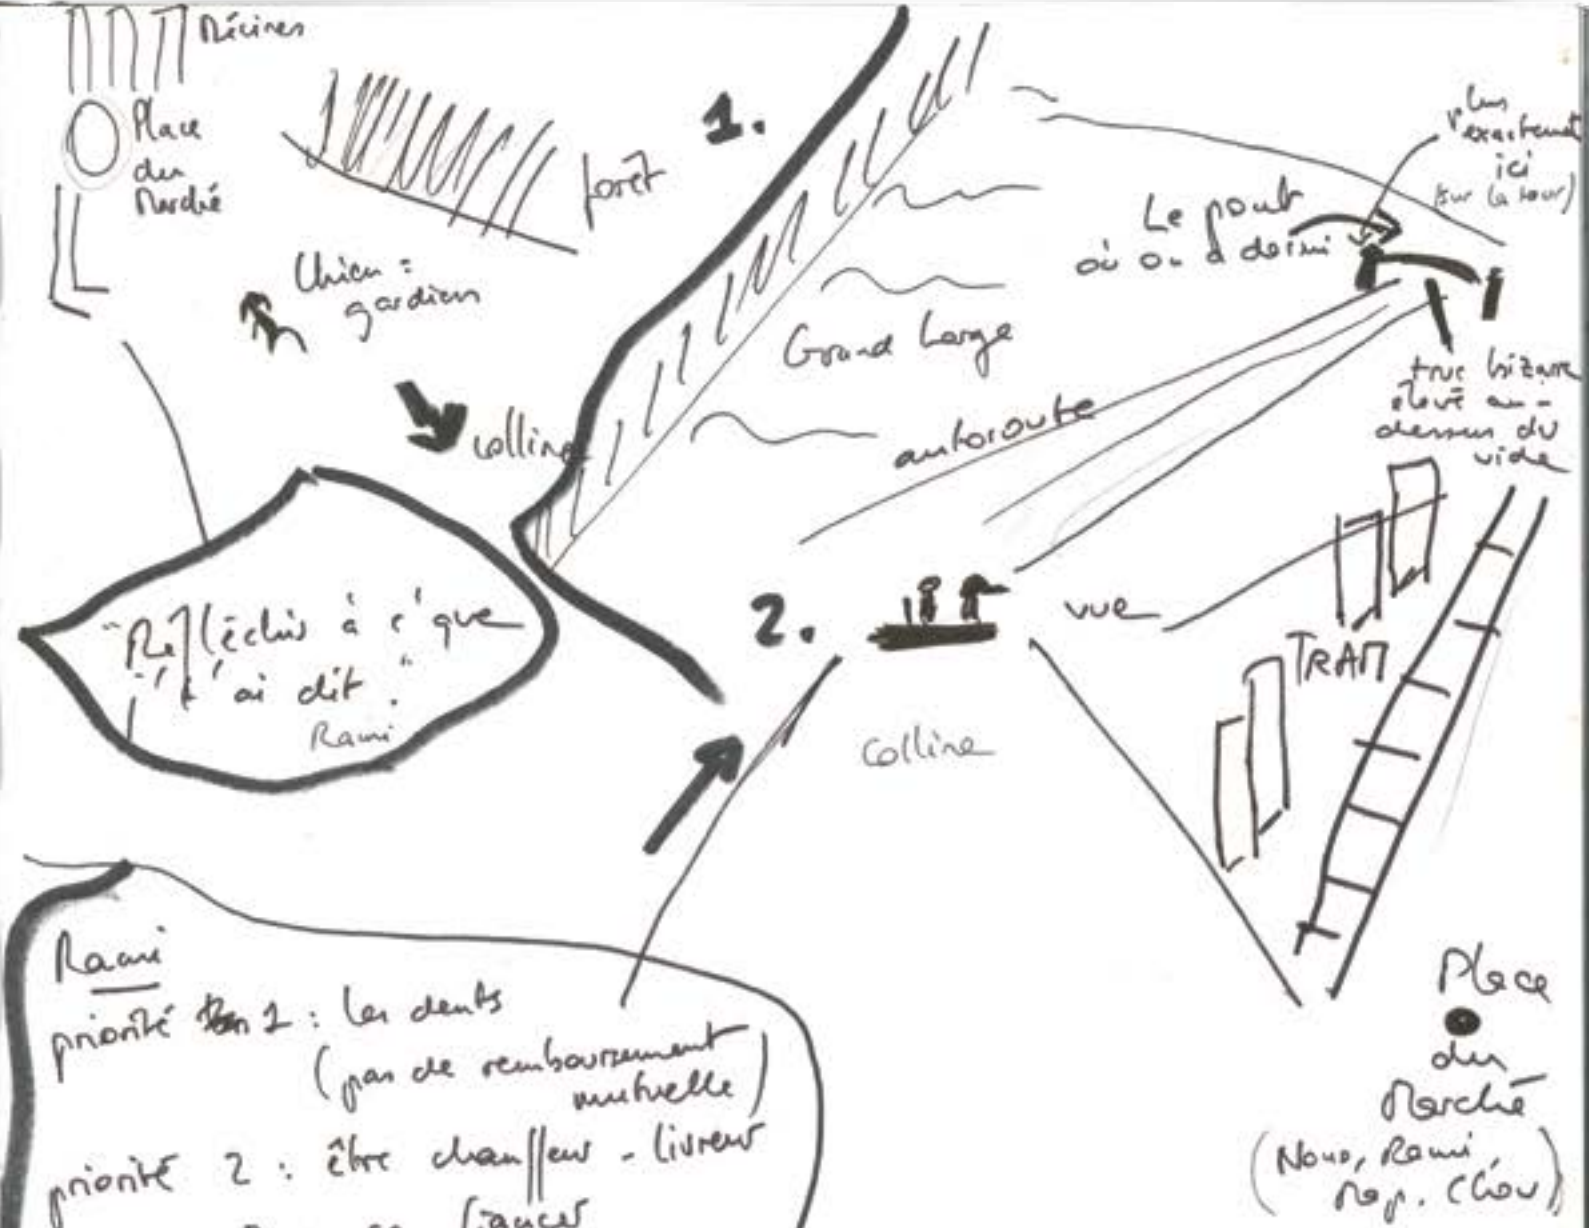 Place
du
Marché
forêt
1.
Chien =
gardien
colline
Grand Large
autoroute
Le pont
où on a dormi
plus
exactement
ici
(sur la tour)
truc bizarre
élevé au-
dessus du
vide
"Réfléchis à c'que
j't'ai dit."
Rami
2.
vue
TRAM
colline
Rami
priorité 1 : les dents
(pas de remboursement
mutuelle)
priorité 2 : être chauffeur-livreur
Place
du
Marché
(Nono, Rami,